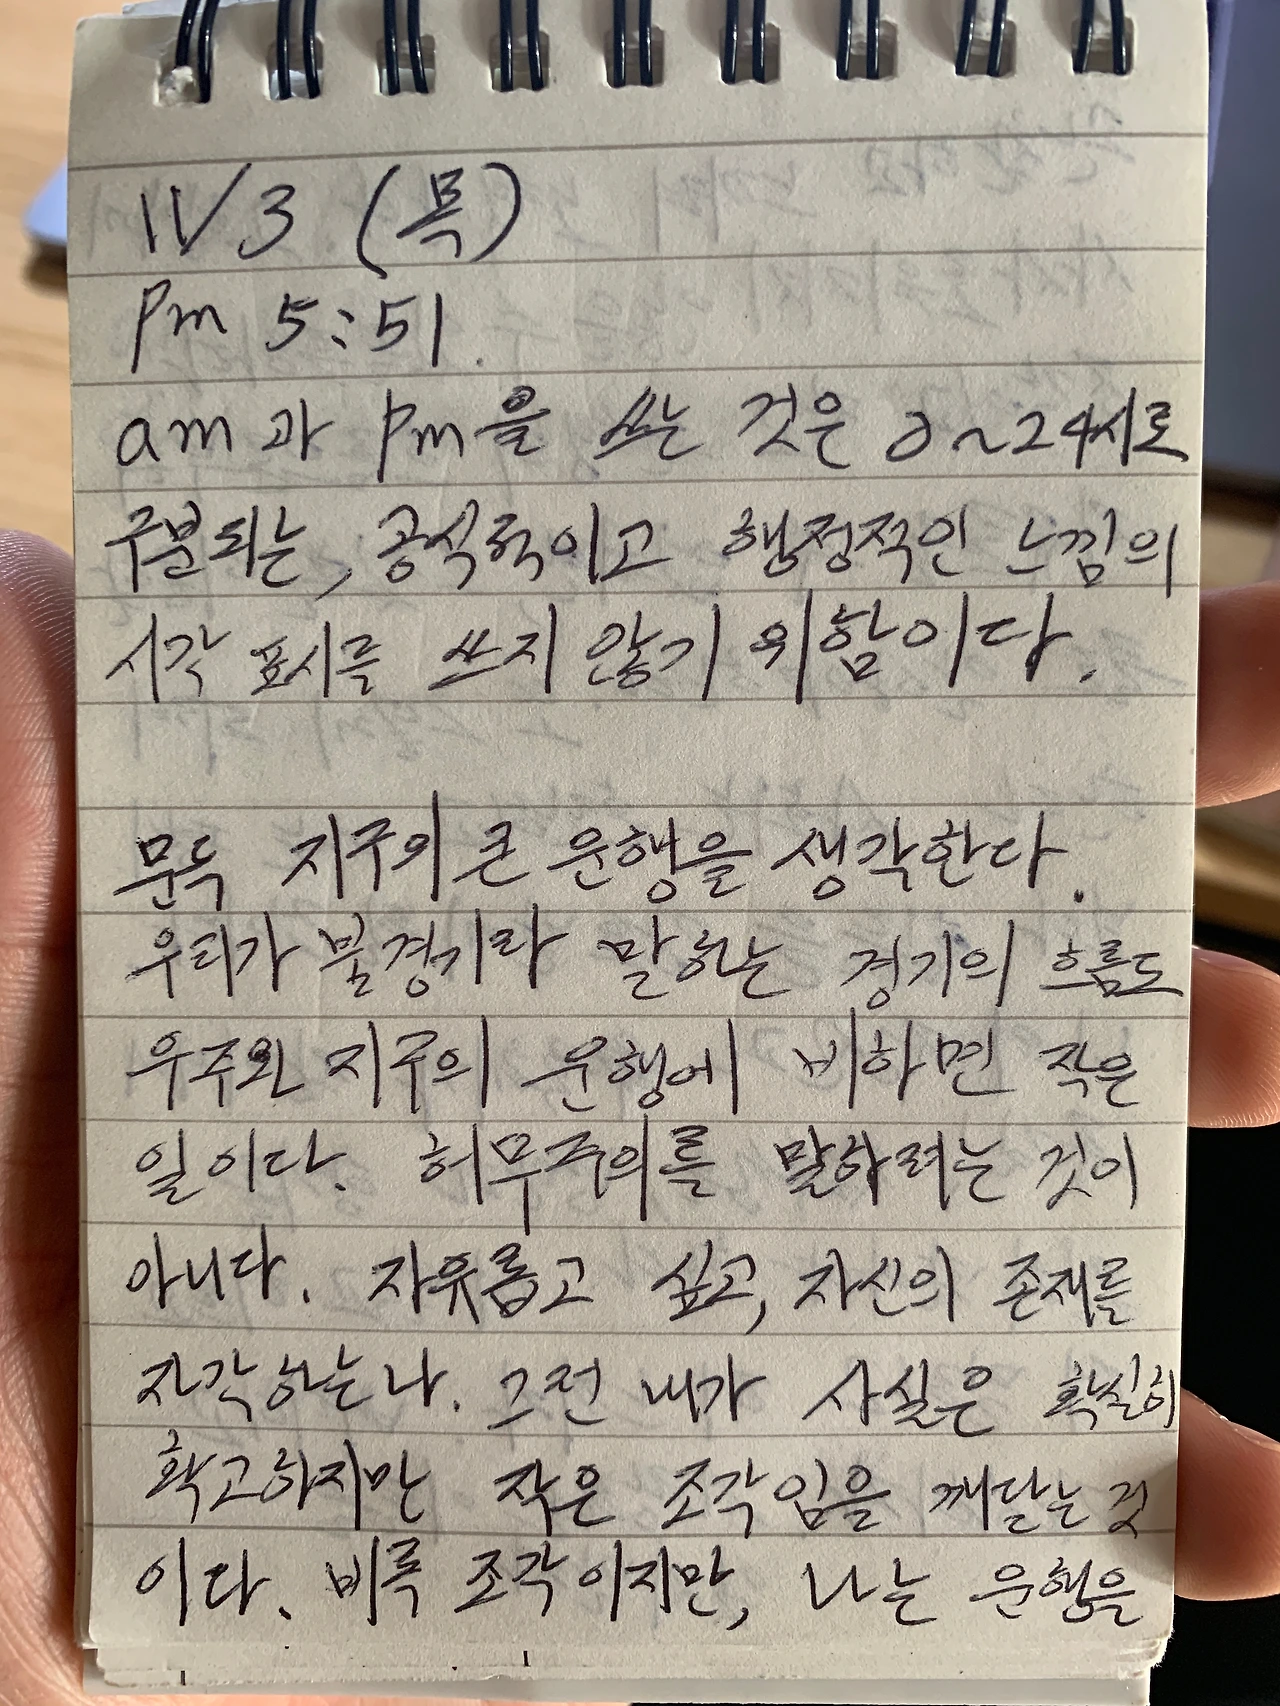 11/3 (목)
Pm 5:51.
am과 pm을 쓰는 것은 0~24시로
구분되는, 공식적이고 행정적인 느낌의
시각 표시를 쓰지 않기 위함이다.
문득 지구의 큰 운행을 생각한다.
우리가 불경기라 말하는 경기의 흐름도
우주와 지구의 운행에 비하면 작은
일이다. 허무주의를 말하려는 것이
아니다. 자유롭고 싶고, 자신의 존재를
자각하는 나. 그런 내가 사실은 확실히
확고하지만 작은 조각임을 깨달는 것
이다. 비록 조각이지만, 나는 운행을